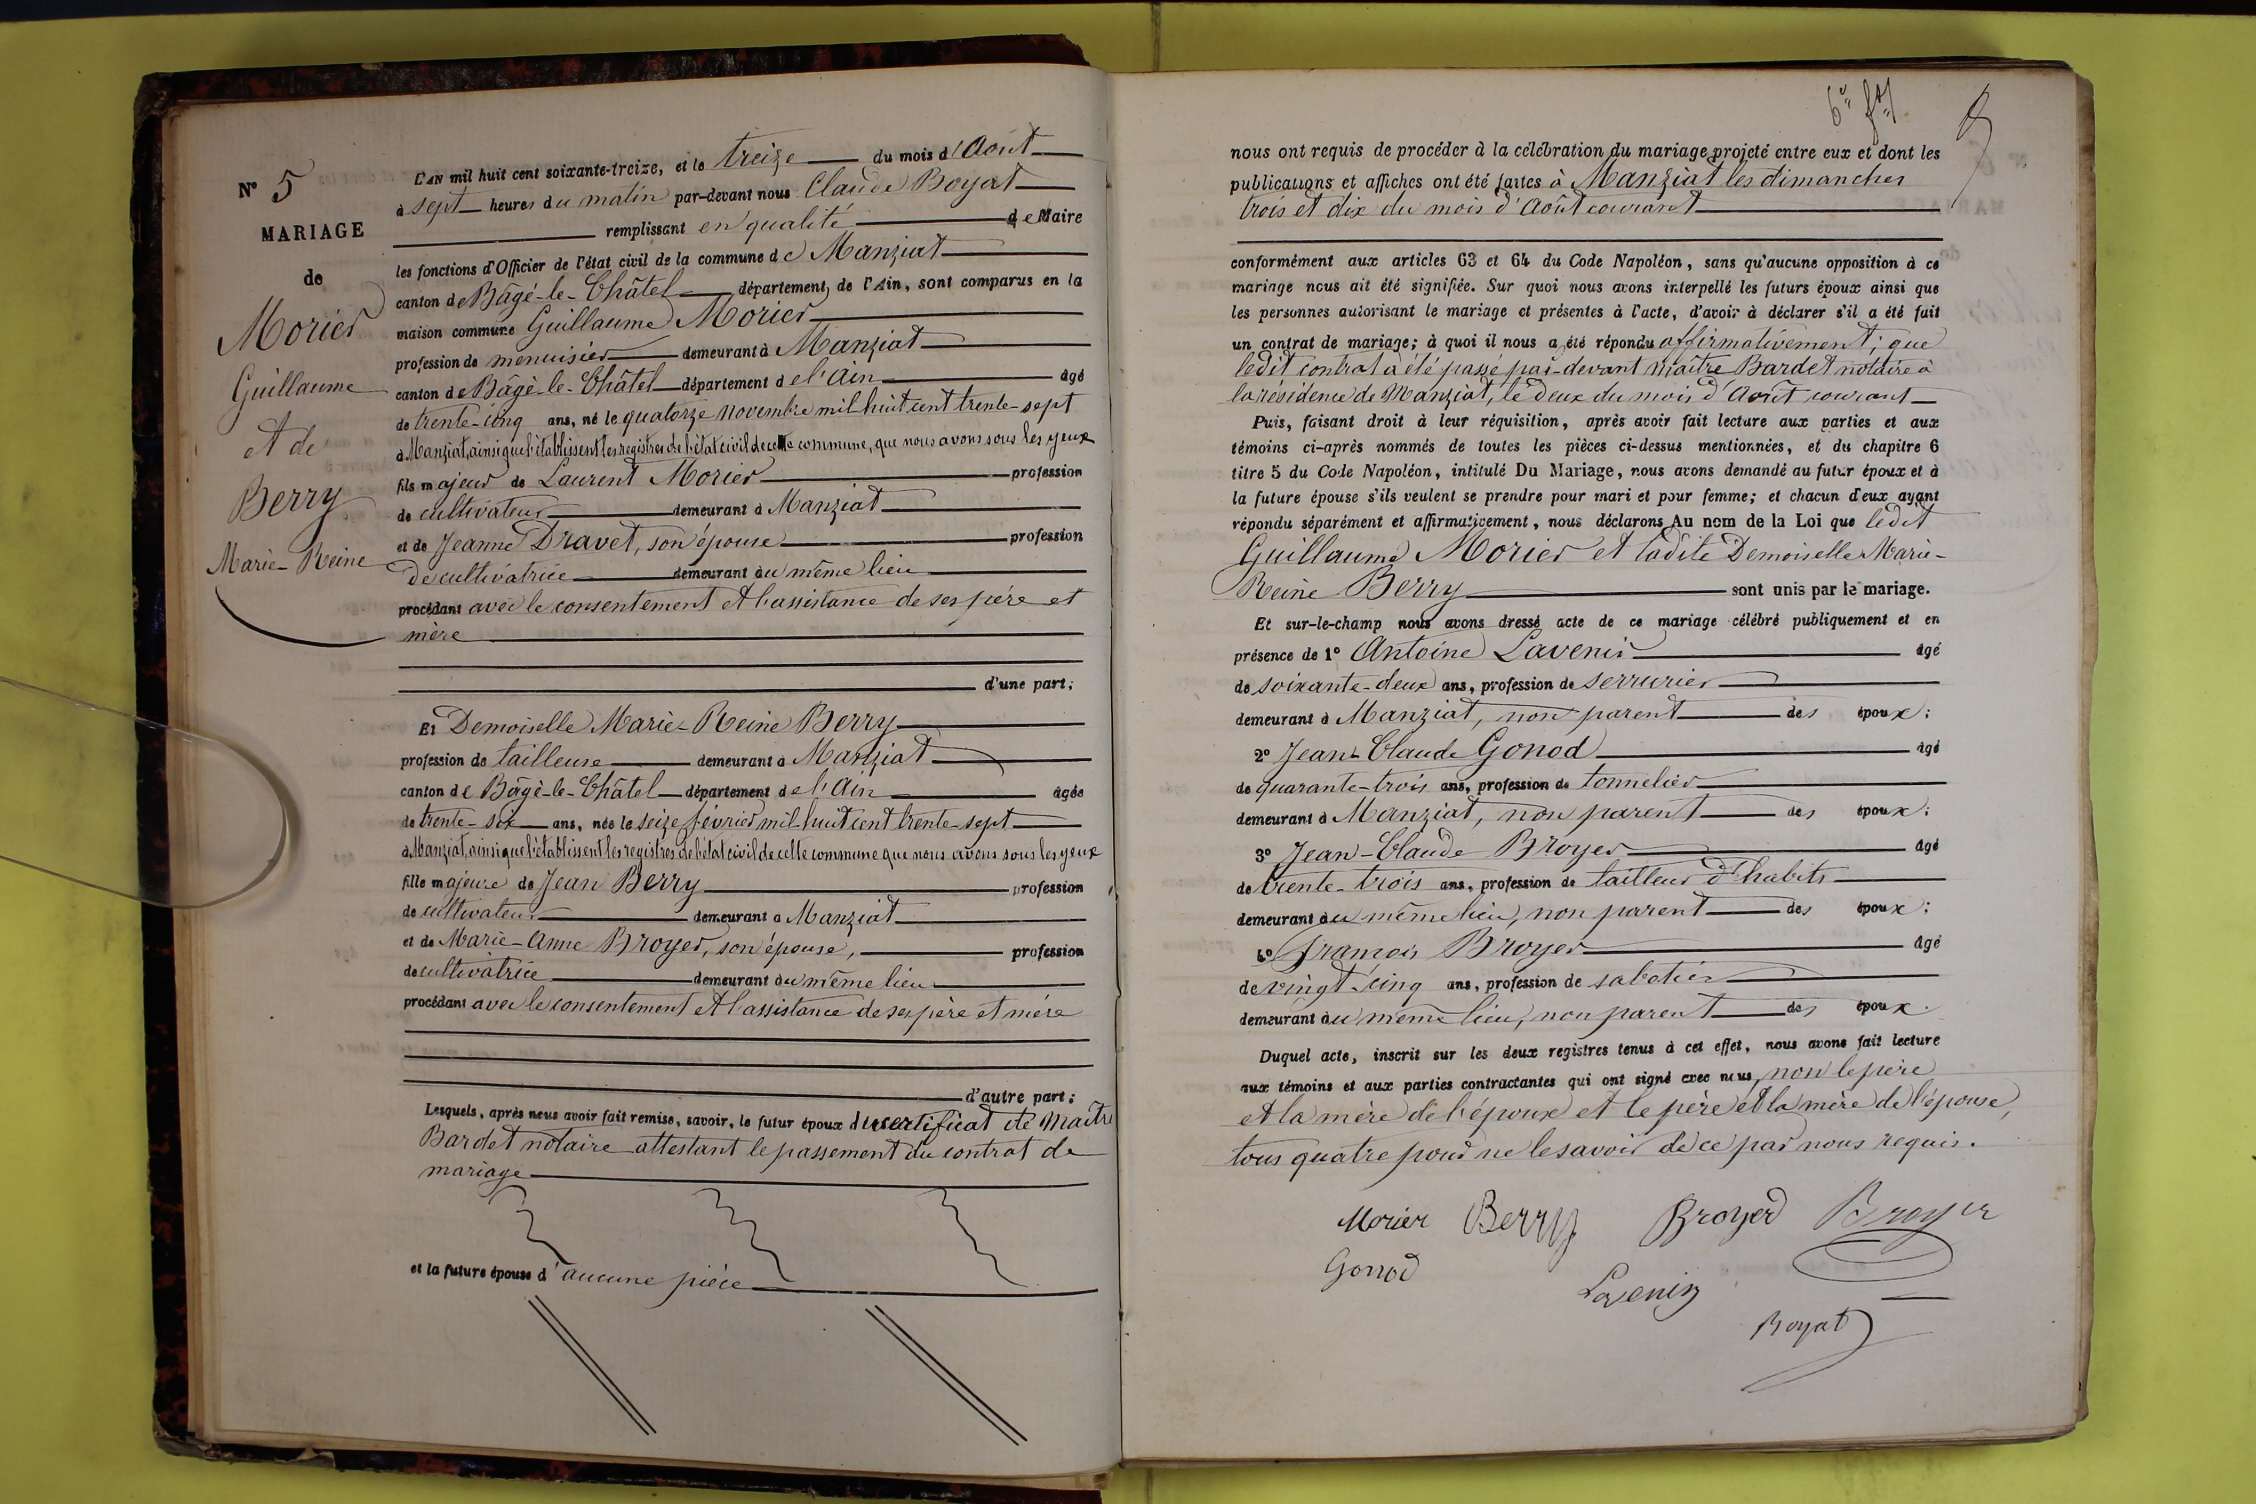 N° 5
MARIAGE
de
Morier
Guillaume
et de
Berry
Marie-Reine
L'AN mil huit cent soixante-treize, et le treize du mois d'Août
à sept heures du matin par-devant nous Claude Boyat
remplissant en qualité de Maire
les fonctions d'Officier de l'état civil de la commune de Manziat
canton de Bâgé-le-Châtel département de l'Ain, sont comparus en la
maison commune Guillaume Morier
profession de menuisier demeurant à Manziat
canton de Bâgé-le-Châtel département de l'Ain âgé
de trente-cinq ans, né le quatorze novembre mil huit cent trente-sept
à Manziat, ainsi que l'établissent les registres de l'état civil de cette commune, que nous avons sous les yeux
fils majeur de Laurent Morier profession
de cultivateur demeurant à Manziat
et de Jeanne Dravet, son épouse profession
de cultivatrice demeurant au même lieu
procédant avec le consentement et l'assistance de ses père et
mère
d'une part;
Et Demoiselle Marie-Reine Berry
profession de tailleuse demeurant à Manziat
canton de Bâgé-le-Châtel département de l'Ain âgée
de trente-six ans, née le seize février mil huit cent trente-sept
à Manziat, ainsi que l'établissent les registres de l'état civil de cette commune que nous avons sous les yeux
fille majeure de Jean Berry profession
de cultivateur demeurant à Manziat
et de Marie-Anne Broyer, son épouse, profession
de cultivatrice demeurant au même lieu
procédant avec le consentement et l'assistance de ses père et mère
d'autre part;
Lesquels, après nous avoir fait remise, savoir, le futur époux du certificat de Maître
Bardet notaire attestant le passement du contrat de
mariage
et la future épouse d'aucune pièce
nous ont requis de procéder à la célébration du mariage projeté entre eux et dont les
publications et affiches ont été faites à Manziat les dimanches
trois et dix du mois d'Août courant
conformément aux articles 63 et 64 du Code Napoléon, sans qu'aucune opposition à ce
mariage nous ait été signifiée. Sur quoi nous avons interpellé les futurs époux ainsi que
les personnes autorisant le mariage et présentes à l'acte, d'avoir à déclarer s'il a été fait
un contrat de mariage; à quoi il nous a été répondu affirmativement; que
ledit contrat à été passé par-devant maître Bardet notaire à
la résidence de Manziat, le deux du mois d'Août courant
Puis, faisant droit à leur réquisition, après avoir fait lecture aux parties et aux
témoins ci-après nommés de toutes les pièces ci-dessus mentionnées, et du chapitre 6
titre 5 du Code Napoléon, intitulé Du Mariage, nous avons demandé au futur époux et à
la future épouse s'ils veulent se prendre pour mari et pour femme; et chacun d'eux ayant
répondu séparément et affirmativement, nous déclarons Au nom de la Loi que ledit
Guillaume Morier et ladite Demoiselle Marie-
Reine Berry sont unis par le mariage.
Et sur-le-champ nous avons dressé acte de ce mariage célébré publiquement et en
présence de 1° Antoine Lavenir âgé
de soixante-deux ans, profession de serrurier
demeurant à Manziat, non parent des époux;
2° Jean-Claude Gonod âgé
de quarante-trois ans, profession de tonnelier
demeurant à Manziat, non parent des époux;
3° Jean-Claude Broyer âgé
de trente-trois ans, profession de tailleur d'habits
demeurant au même lieu, non parent des époux;
4° François Broyer âgé
de vingt cinq ans, profession de sabotier
demeurant au même lieu, non parent des époux.
Duquel acte, inscrit sur les deux registres tenus à cet effet, nous avons fait lecture
aux témoins et aux parties contractantes qui ont signé avec nous, non le père
et la mère de l'époux et le père et la mère de l'épouse,
tous quatre pour ne le savoir de ce par nous requis.
Morier Berry Broyer Broyer
Gonod
Lavenir
Boyat